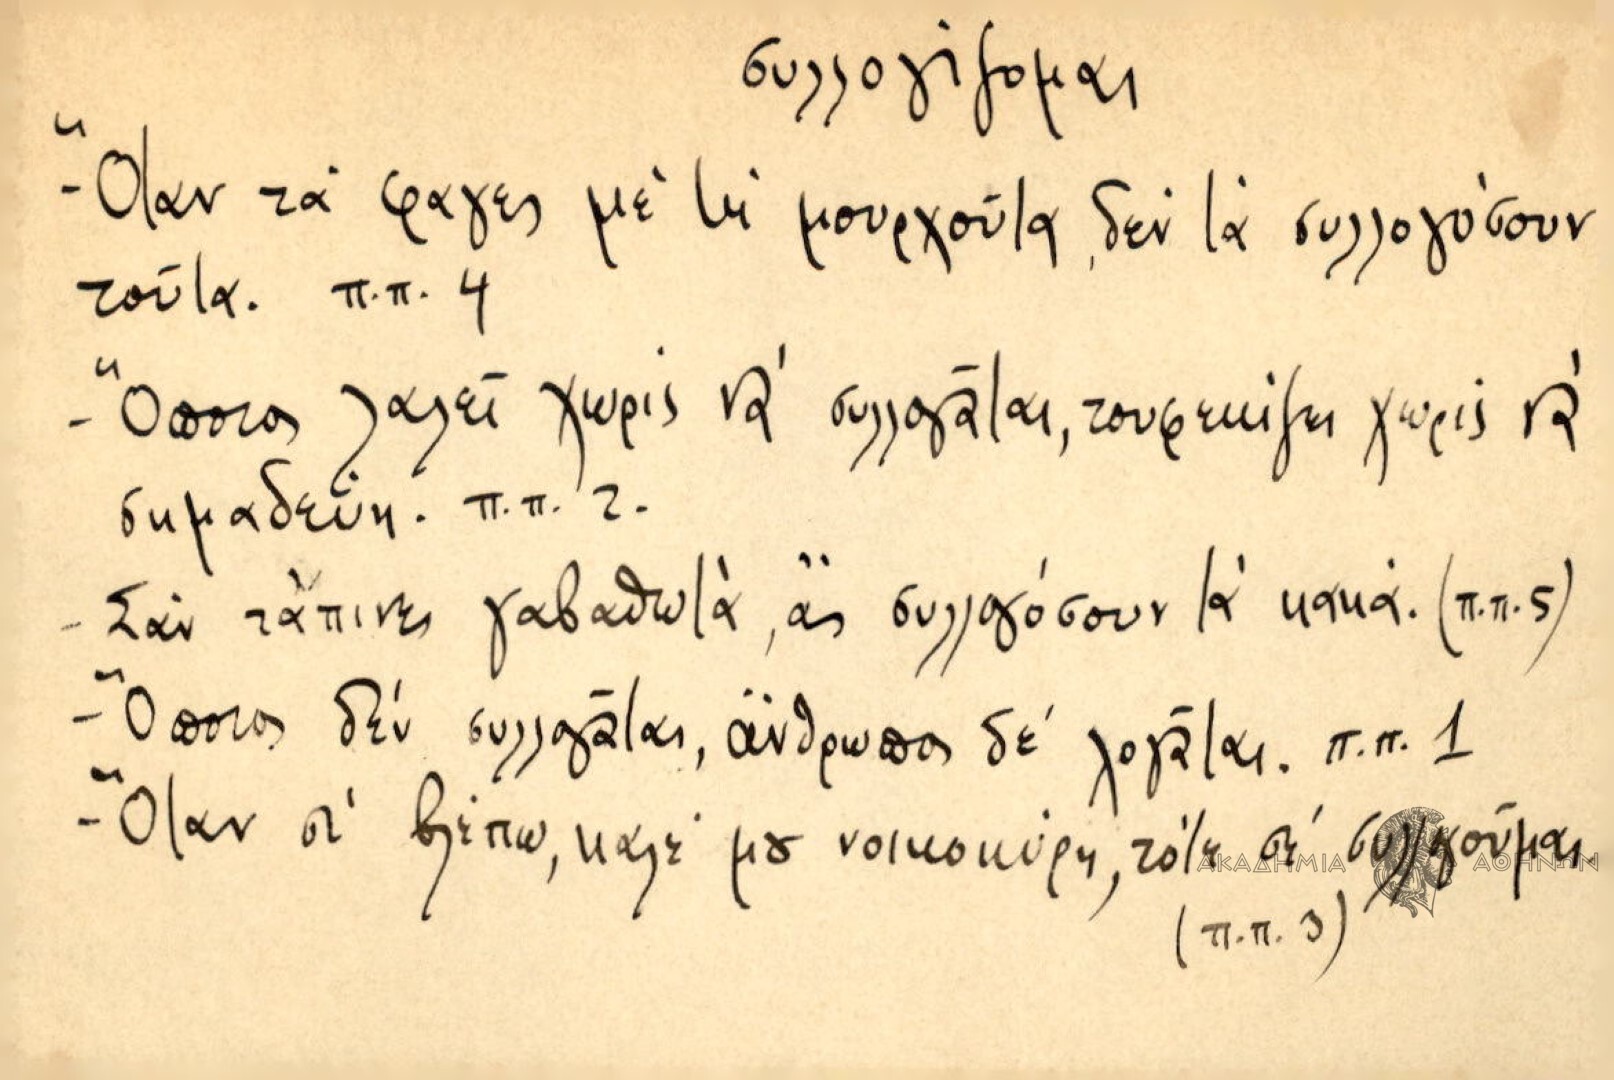 συλλογίζομαι
- Ὅταν τὰ φαγες μὲ τὴ μουρχοῦτα, δὲν τὰ συλλογόσουν
τοῦτα. π.π. 4
- Ὅποιος λαλεῖ χωρὶς νὰ συλλογᾶται, τουφεκίζει χωρὶς νὰ
σημαδεύῃ. π.π. 2.
- Σὰν τἄπινες γαβαθωτὰ, ἂς συλλογόσουν τὰ κακά. (π.π. 5)
- Ὅποιος δὲν συλλογᾶται, ἄνθρωπος δὲ λογᾶται. π.π. 1
- Ὅταν σὲ βλέπω, καλέ μου νοικοκύρη, τότε σὲ συλλογοῦμαι.
(π.π. 3)
ΑΚΑΔΗΜΙΑ ΑΘΗΝΩΝ